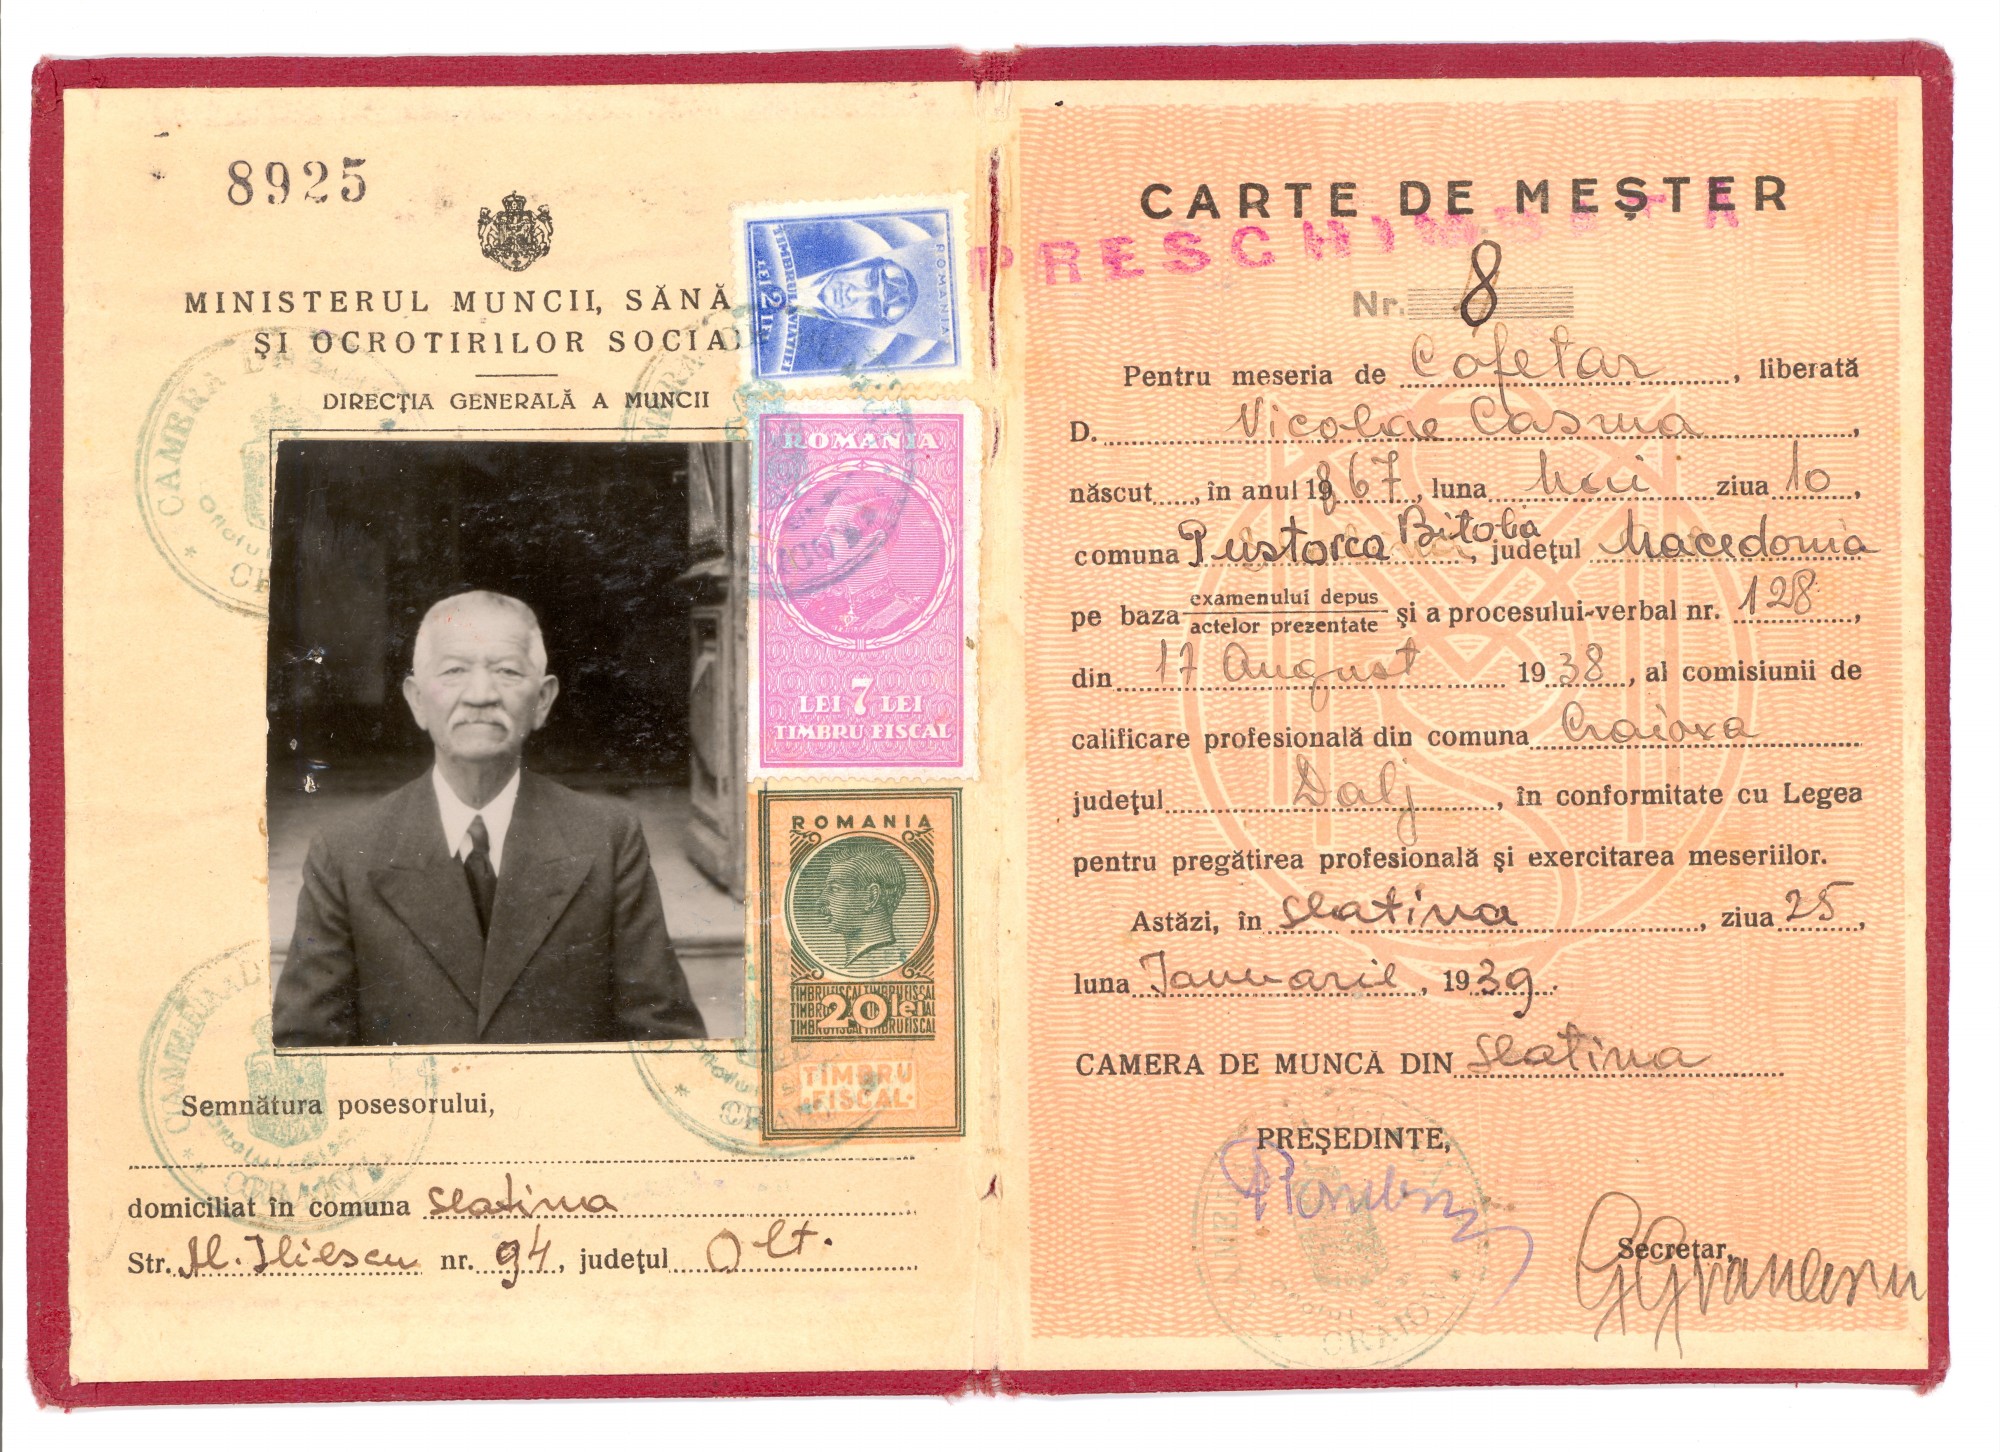 8925
MINISTERUL MUNCII, SĂNĂ
ȘI OCROTIRILOR SOCIA
DIRECȚIA GENERALĂ A MUNCII
ROMANIA
TIMBRUL AVIAȚIEI
LEI 2 LEI
ROMANIA
LEI 7 LEI
TIMBRU FISCAL
ROMANIA
20 lei
TIMBRU
FISCAL
Semnătura posesorului,
domiciliat în comuna Slatina
Str. Al. Iliescu nr. 94, județul Olt.
CARTE DE MEȘTER
PRESCHIMBATA
Nr. 8
Pentru meseria de Cofetar, liberată
D. Nicolae Casma,
născut, în anul 1867, luna Mai ziua 10,
comuna Pustorca Bitolia, județul Macedonia
pe baza examenului depus / actelor prezentate și a procesului-verbal nr. 128,
din 17 August 1938, al comisiunii de
calificare profesională din comuna Craiova
județul Dalj, în conformitate cu Legea
pentru pregătirea profesională și exercitarea meseriilor.
Astăzi, în Slatina, ziua 25,
luna Ianuarie, 1939.
CAMERA DE MUNCĂ DIN Slatina
PREȘEDINTE,
Secretar,